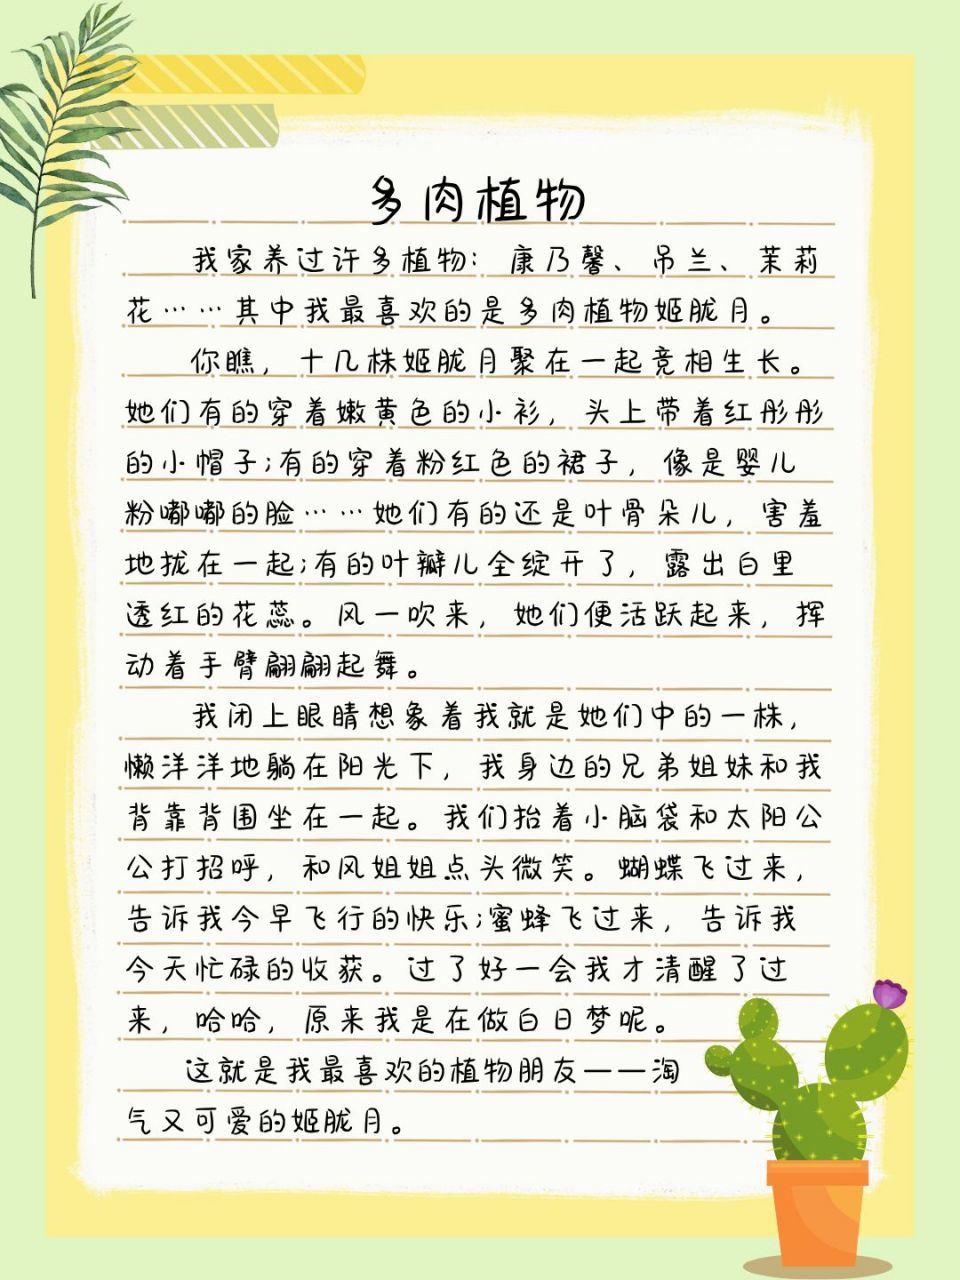 多肉植物
我家养过许多植物：康乃馨、吊兰、茉莉
花……其中我最喜欢的是多肉植物姬胧月。
你瞧，十几株姬胧月聚在一起竞相生长。
她们有的穿着嫩黄色的小衫，头上带着红彤彤
的小帽子;有的穿着粉红色的裙子，像是婴儿
粉嘟嘟的脸……她们有的还是叶骨朵儿，害羞
地拢在一起;有的叶瓣儿全绽开了，露出白里
透红的花蕊。风一吹来，她们便活跃起来，挥
动着手臂翩翩起舞。
我闭上眼睛想象着我就是她们中的一株，
懒洋洋地躺在阳光下，我身边的兄弟姐妹和我
背靠背围坐在一起。我们抬着小脑袋和太阳公
公打招呼，和风姐姐点头微笑。蝴蝶飞过来，
告诉我今早飞行的快乐;蜜蜂飞过来，告诉我
今天忙碌的收获。过了好一会我才清醒了过
来，哈哈，原来我是在做白日梦呢。
这就是我最喜欢的植物朋友——淘
气又可爱的姬胧月。